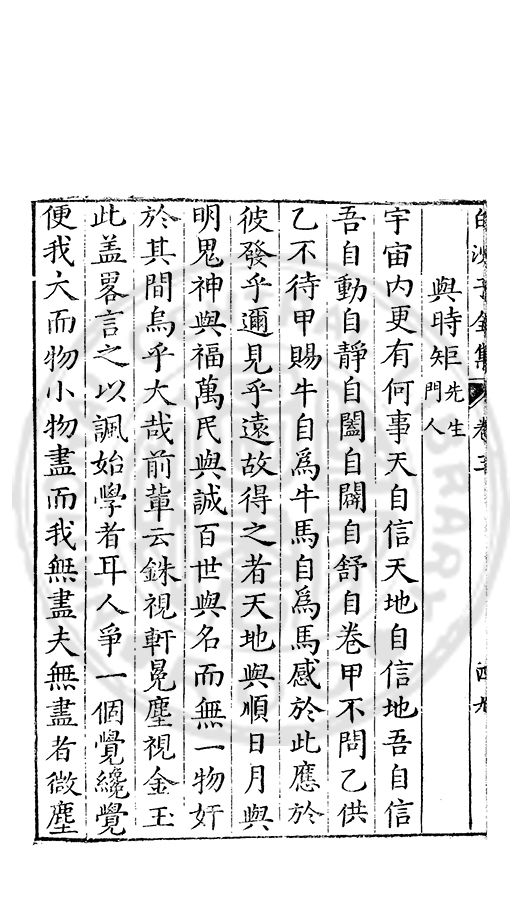 白沙子全集 卷三 四九
與時矩先生門人
宇宙内更有何事天自信天地自信地吾自信
吾自動自靜自闔自闢自舒自卷甲不問乙供
乙不待甲賜牛自爲牛馬自爲馬感於此應於
彼發乎邇見乎遠故得之者天地與順日月與
明鬼神與福萬民與誠百世與名而無一物奸
於其間烏乎大哉前輩云銖視軒冕塵視金玉
此盖畧言之以諷始學者耳人爭一個覺纔覺
便我大而物小物盡而我無盡夫無盡者微塵